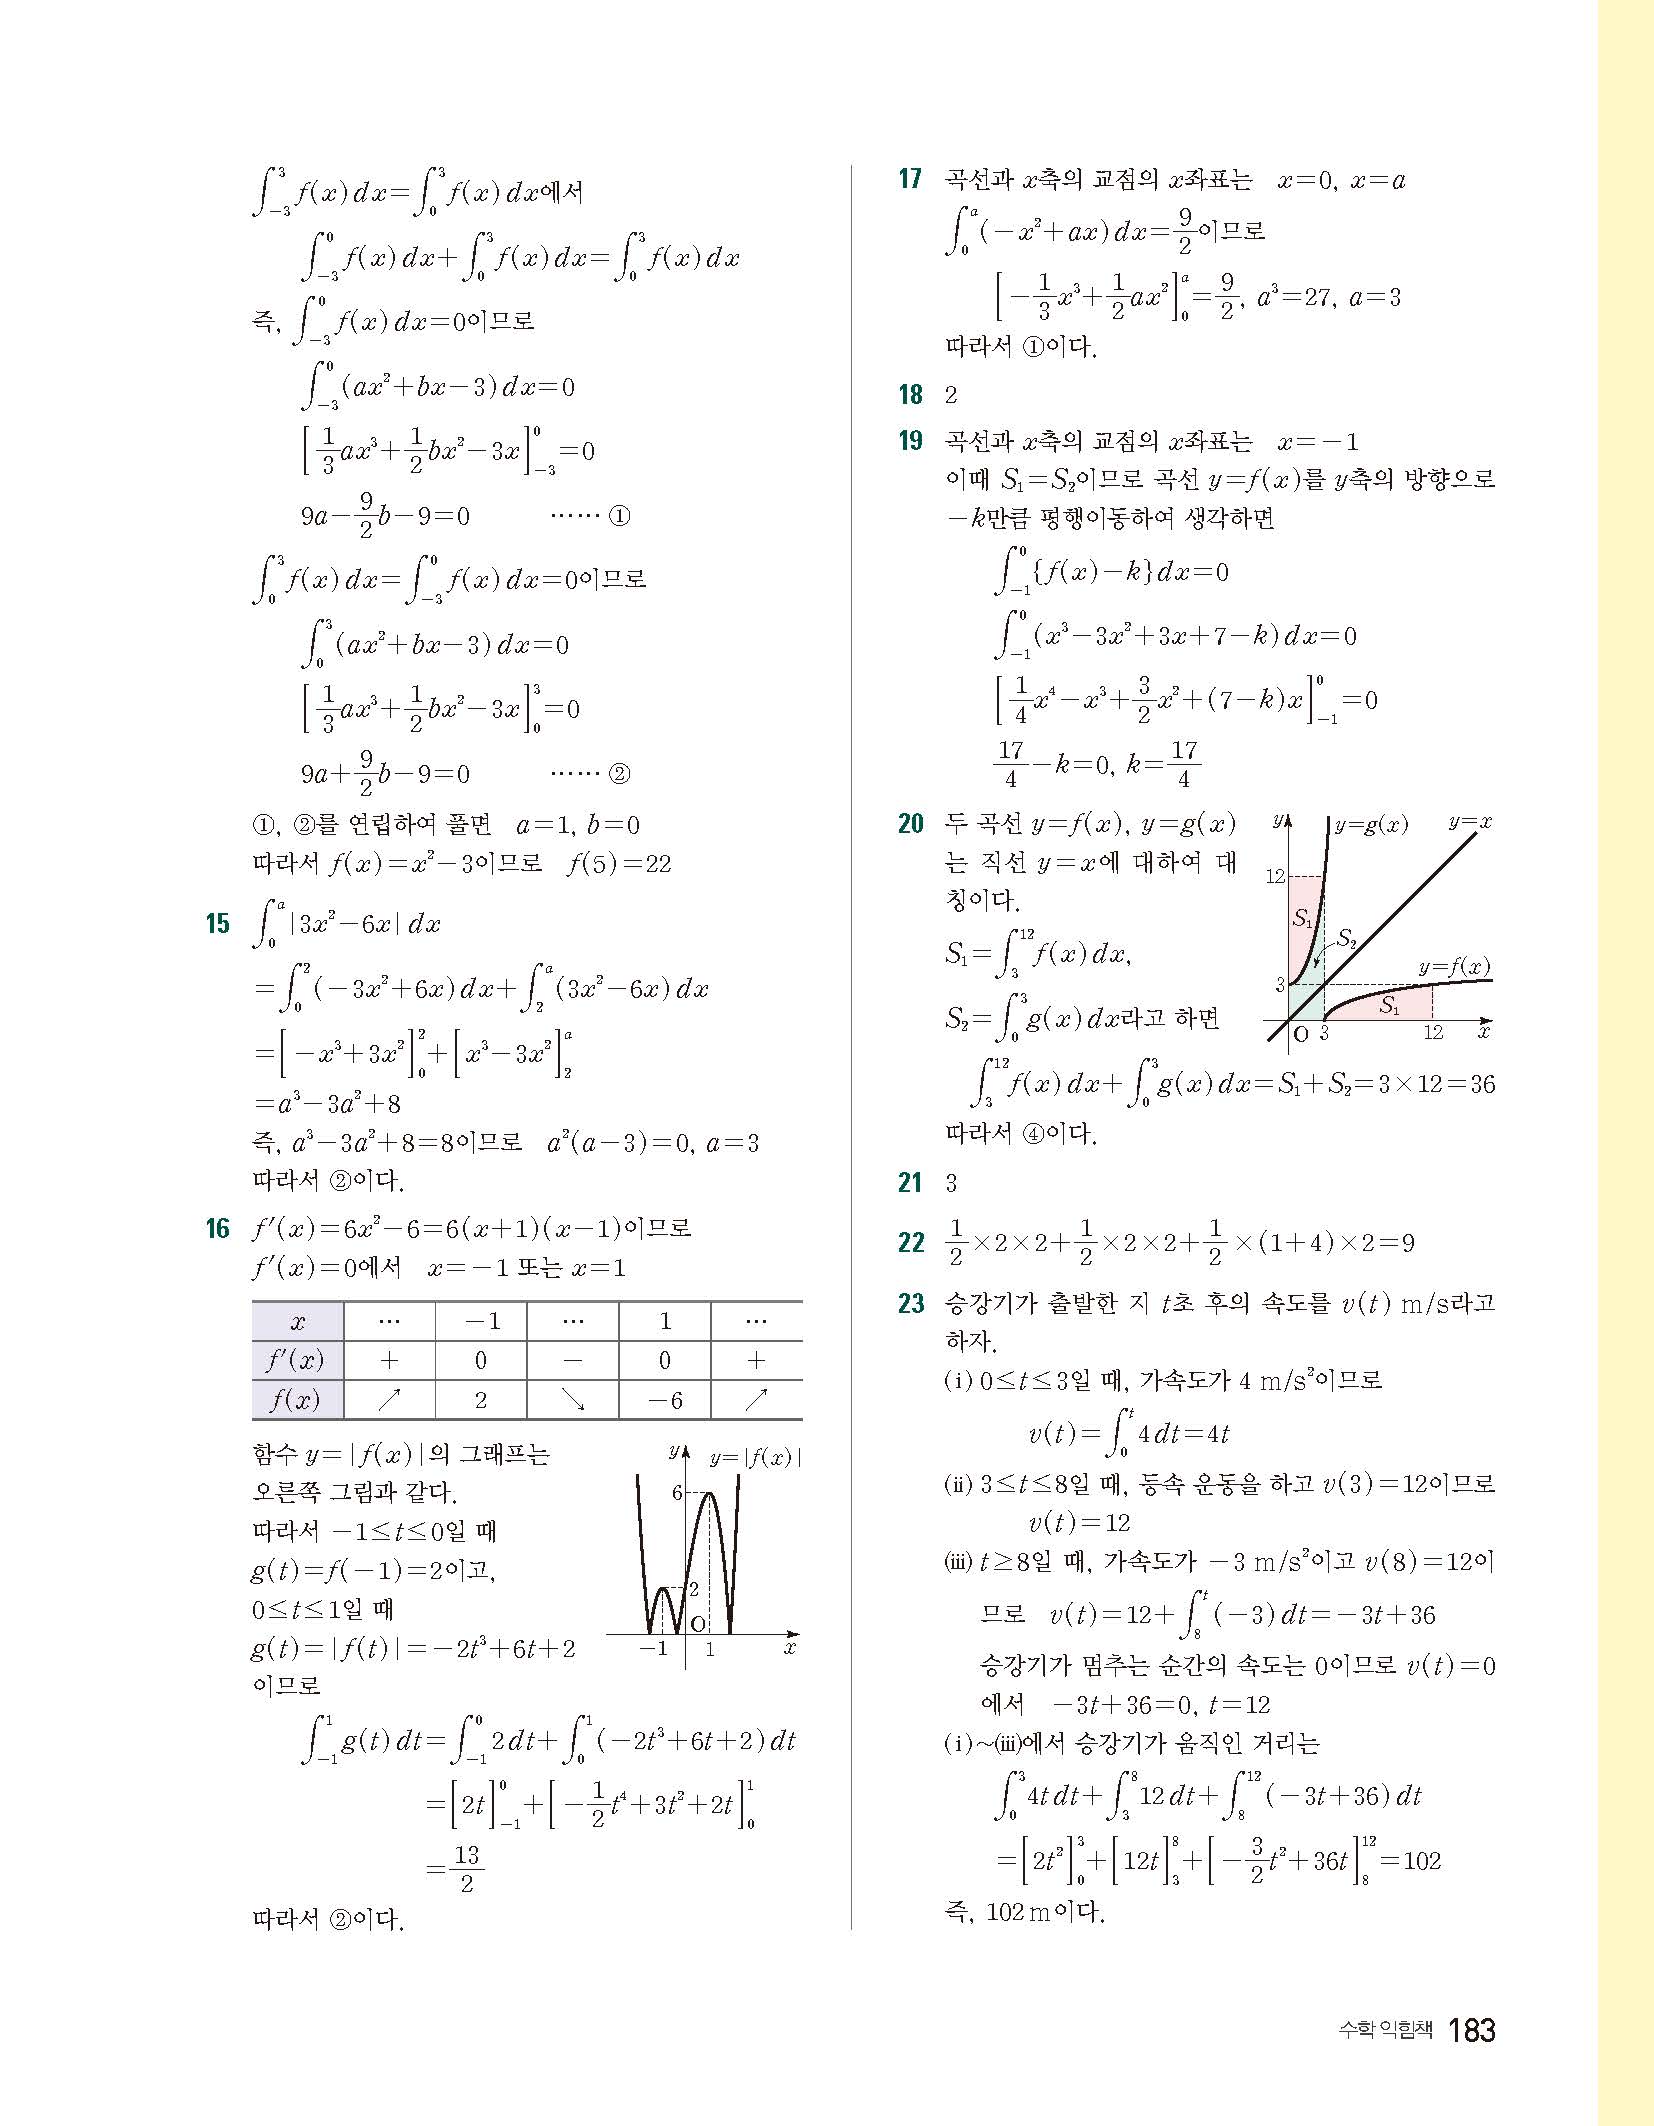 ∫₋₃³ f(x)dx=∫₀³ f(x)dx에서
∫₋₃⁰ f(x)dx+∫₀³ f(x)dx=∫₀³ f(x)dx
즉, ∫₋₃⁰ f(x)dx=0이므로
∫₋₃⁰ (ax²+bx-3)dx=0
[1/3 ax³+1/2 bx²-3x]₋₃⁰=0
9a-9/2 b-9=0 …… ①
∫₀³ f(x)dx=∫₋₃⁰ f(x)dx=0이므로
∫₀³ (ax²+bx-3)dx=0
[1/3 ax³+1/2 bx²-3x]₀³=0
9a+9/2 b-9=0 …… ②
①, ②를 연립하여 풀면 a=1, b=0
따라서 f(x)=x²-3이므로 f(5)=22
15 ∫₀ᵃ |3x²-6x|dx
=∫₀² (-3x²+6x)dx+∫₂ᵃ (3x²-6x)dx
=[-x³+3x²]₀²+[x³-3x²]₂ᵃ
=a³-3a²+8
즉, a³-3a²+8=8이므로 a²(a-3)=0, a=3
따라서 ②이다.
16 f′(x)=6x²-6=6(x+1)(x-1)이므로
f′(x)=0에서 x=-1 또는 x=1
x … -1 … 1 …
f′(x) + 0 - 0 +
f(x) ↗ 2 ↘ -6 ↗
함수 y=|f(x)|의 그래프는
오른쪽 그림과 같다.
따라서 -1≤t≤0일 때
g(t)=f(-1)=2이고,
0≤t≤1일 때
g(t)=|f(t)|=-2t³+6t+2
이므로
y y=|f(x)|
6
2
O
-1 1 x
∫₋₁¹ g(t)dt=∫₋₁⁰ 2dt+∫₀¹ (-2t³+6t+2)dt
=[2t]₋₁⁰+[-1/2 t⁴+3t²+2t]₀¹
=13/2
따라서 ②이다.
17 곡선과 x축의 교점의 x좌표는 x=0, x=a
∫₀ᵃ (-x²+ax)dx=9/2이므로
[-1/3 x³+1/2 ax²]₀ᵃ=9/2, a³=27, a=3
따라서 ①이다.
18 2
19 곡선과 x축의 교점의 x좌표는 x=-1
이때 S₁=S₂이므로 곡선 y=f(x)를 y축의 방향으로
-k만큼 평행이동하여 생각하면
∫₋₁⁰ {f(x)-k}dx=0
∫₋₁⁰ (x³-3x²+3x+7-k)dx=0
[1/4 x⁴-x³+3/2 x²+(7-k)x]₋₁⁰=0
17/4-k=0, k=17/4
20 두 곡선 y=f(x), y=g(x)
는 직선 y=x에 대하여 대
칭이다.
S₁=∫₃¹² f(x)dx,
S₂=∫₀³ g(x)dx라고 하면
y y=g(x) y=x
12
S₁
S₂
y=f(x)
3
S₁
O 3 12 x
∫₃¹² f(x)dx+∫₀³ g(x)dx=S₁+S₂=3×12=36
따라서 ④이다.
21 3
22 1/2×2×2+1/2×2×2+1/2×(1+4)×2=9
23 승강기가 출발한 지 t초 후의 속도를 v(t) m/s라고
하자.
(ⅰ) 0≤t≤3일 때, 가속도가 4 m/s²이므로
v(t)=∫₀ᵗ 4dt=4t
(ⅱ) 3≤t≤8일 때, 등속 운동을 하고 v(3)=12이므로
v(t)=12
(ⅲ) t≥8일 때, 가속도가 -3 m/s²이고 v(8)=12이
므로 v(t)=12+∫₈ᵗ (-3)dt=-3t+36
승강기가 멈추는 순간의 속도는 0이므로 v(t)=0
에서 -3t+36=0, t=12
(ⅰ)~(ⅲ)에서 승강기가 움직인 거리는
∫₀³ 4tdt+∫₃⁸ 12dt+∫₈¹² (-3t+36)dt
=[2t²]₀³+[12t]₃⁸+[-3/2 t²+36t]₈¹²=102
즉, 102m이다.
수학 익힘책 183